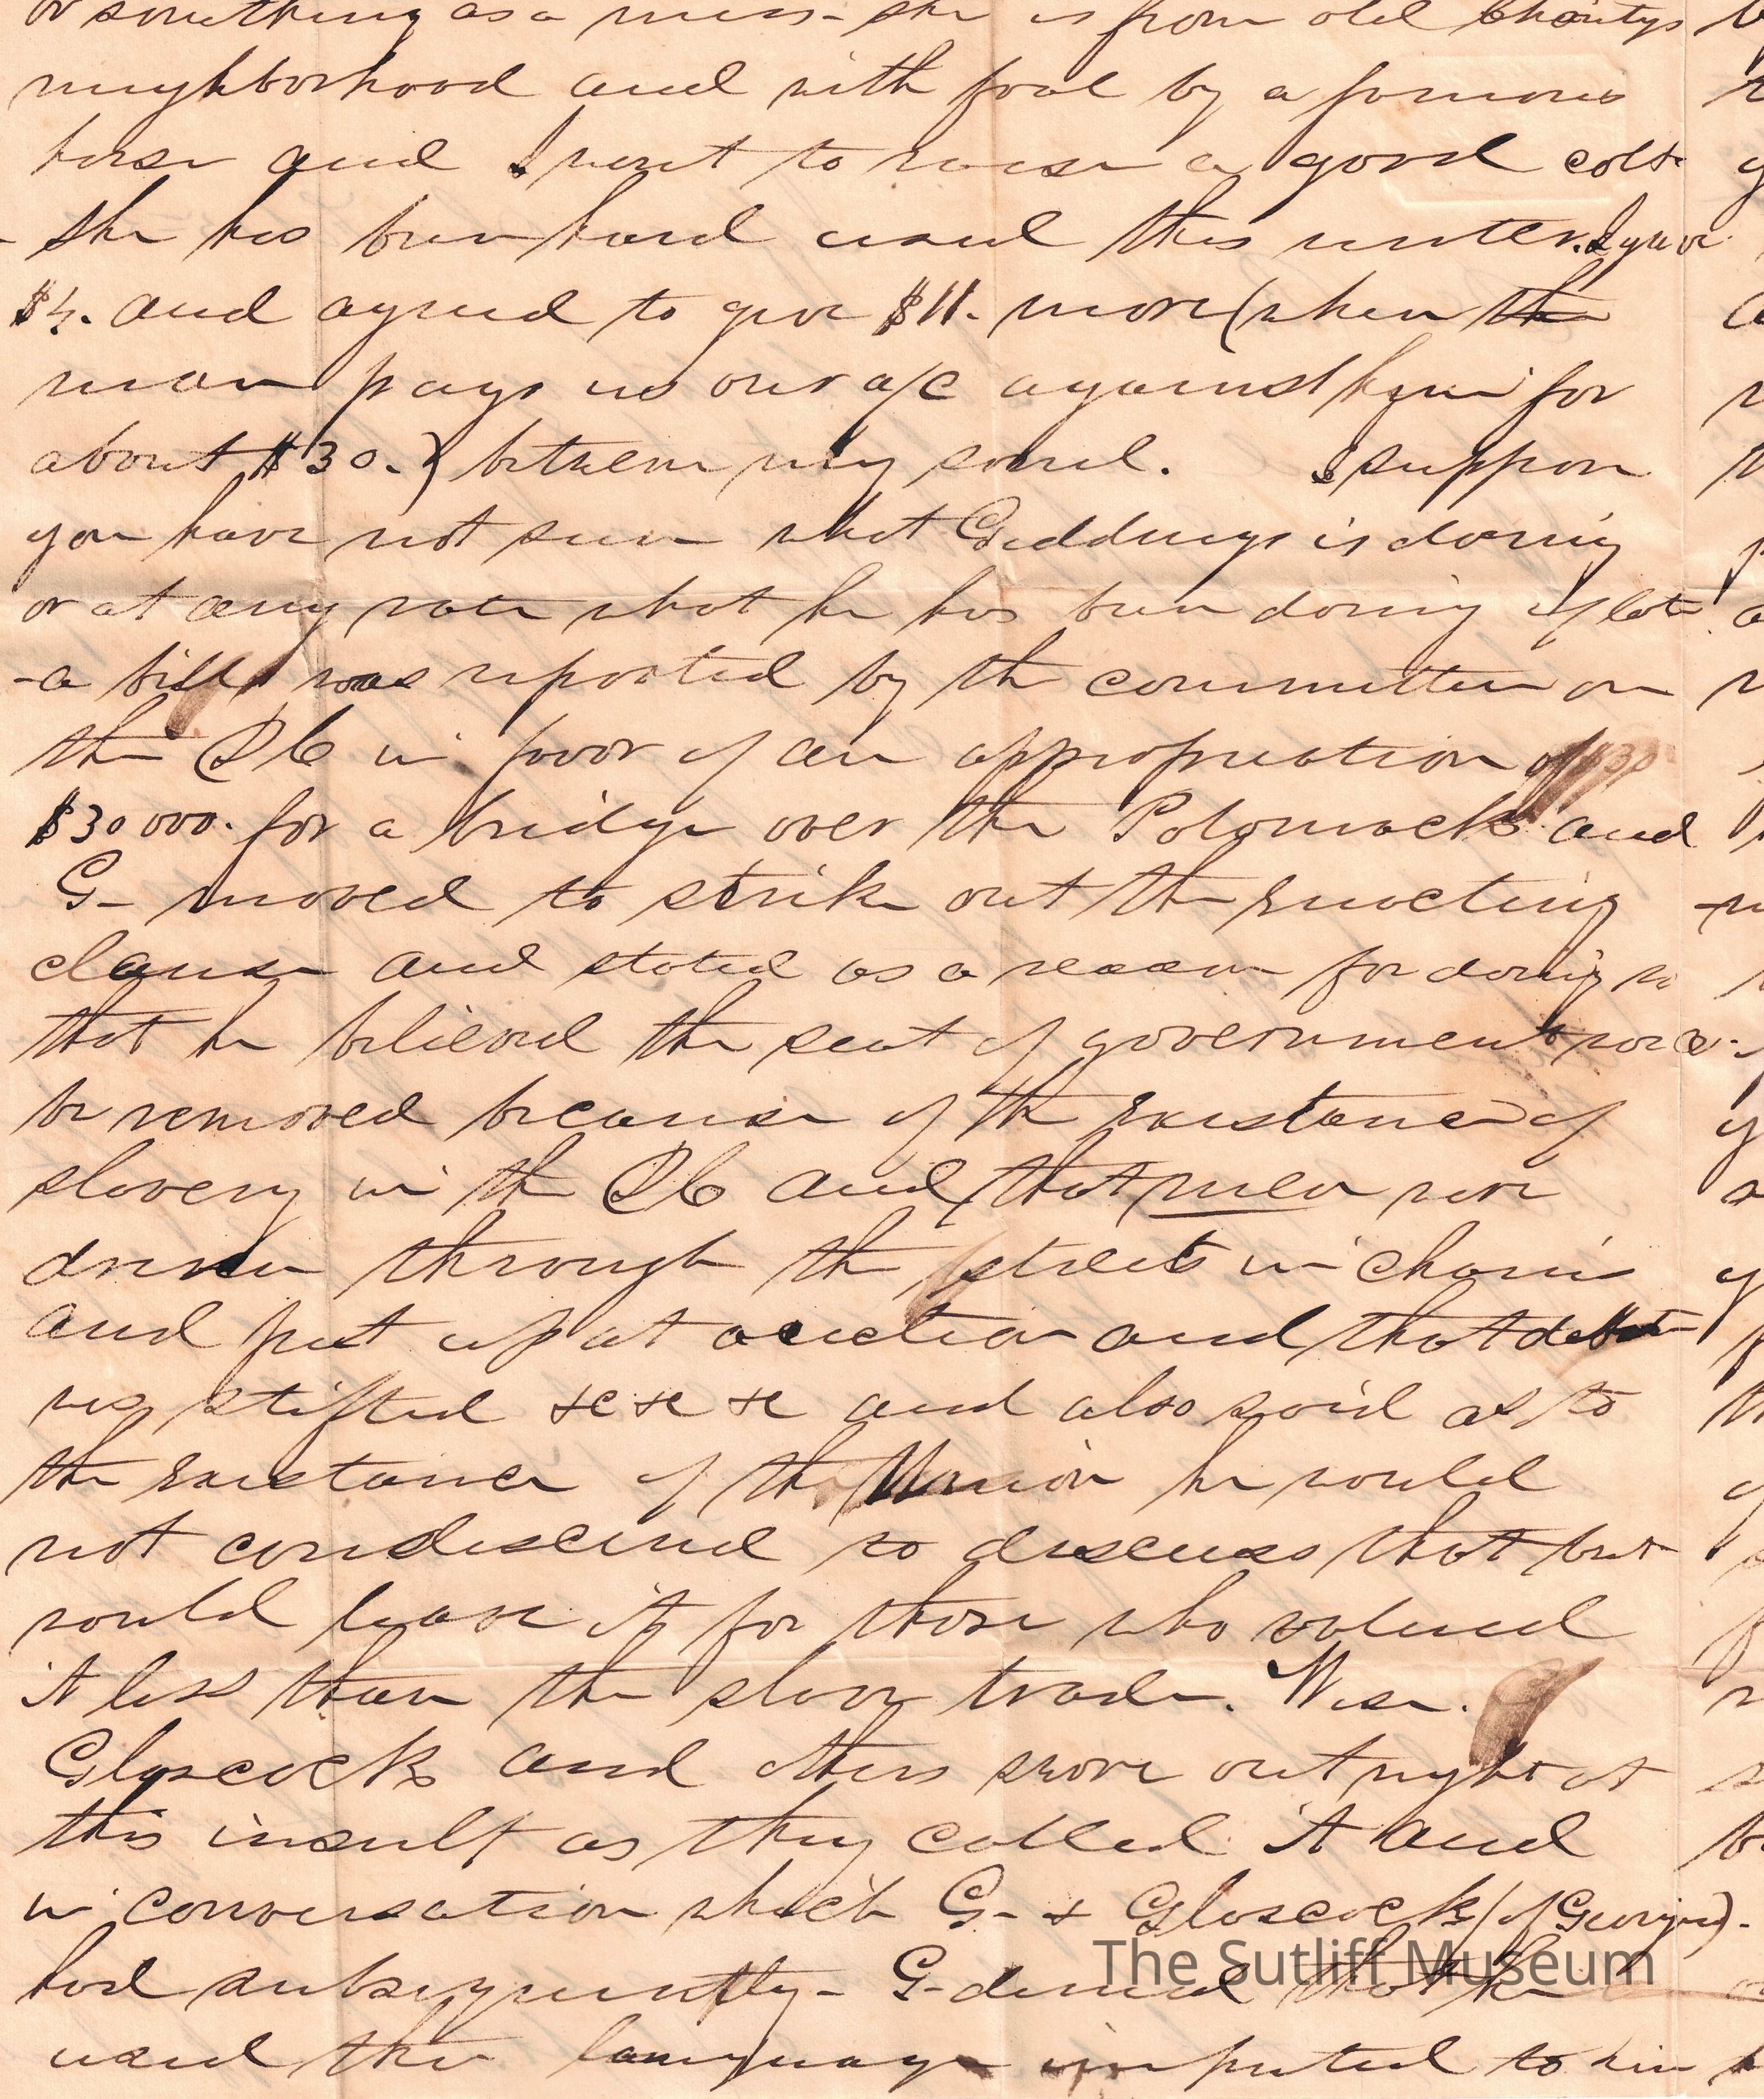 or something as a mess - she is from old Charitys
neighborhood and with foal by a famous
horse and I want to raise a good colt
- she has been hard used this winter. I gave
$4. and agreed to give $11. more (when the
man pays us our a/c against him for
about $30.) between my soul. I suppose
you have not seen what Giddings is doing
or at any rate what he has been doing of late
- a bill was reported by the committee on
the DC in favor of an appropriation of
$30000. for a bridge over the Potomack and
G- moved to strike out the enacting
clause and stated as a reason for doing so
that he believed the seat of government
be removed because of the existence of
slavery in the DC and that men were
driven through the streets in chains
and put up at auction and that debate
was stifled &c &c &c and also said as to
the existance of the Union he would
not condescend to discuss that but
would leave it for those who valued
it less than the slave trade. Wise.
Glascock and others swore outright at
this insult as they called it and
in conversation which G- & Glascock (of Georgia)-
had subsequently - G- denied that he
used the language imputed to him
The Sutliff Museum